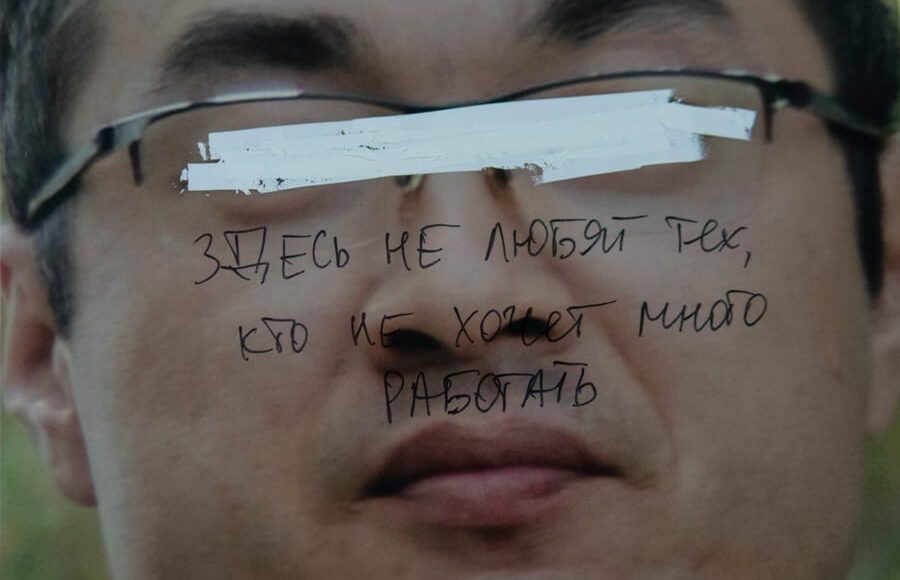 ЗДЕСЬ НЕ ЛЮБЯТ ТЕХ,
КТО НЕ ХОЧЕТ МНОГО
РАБОТАТЬ